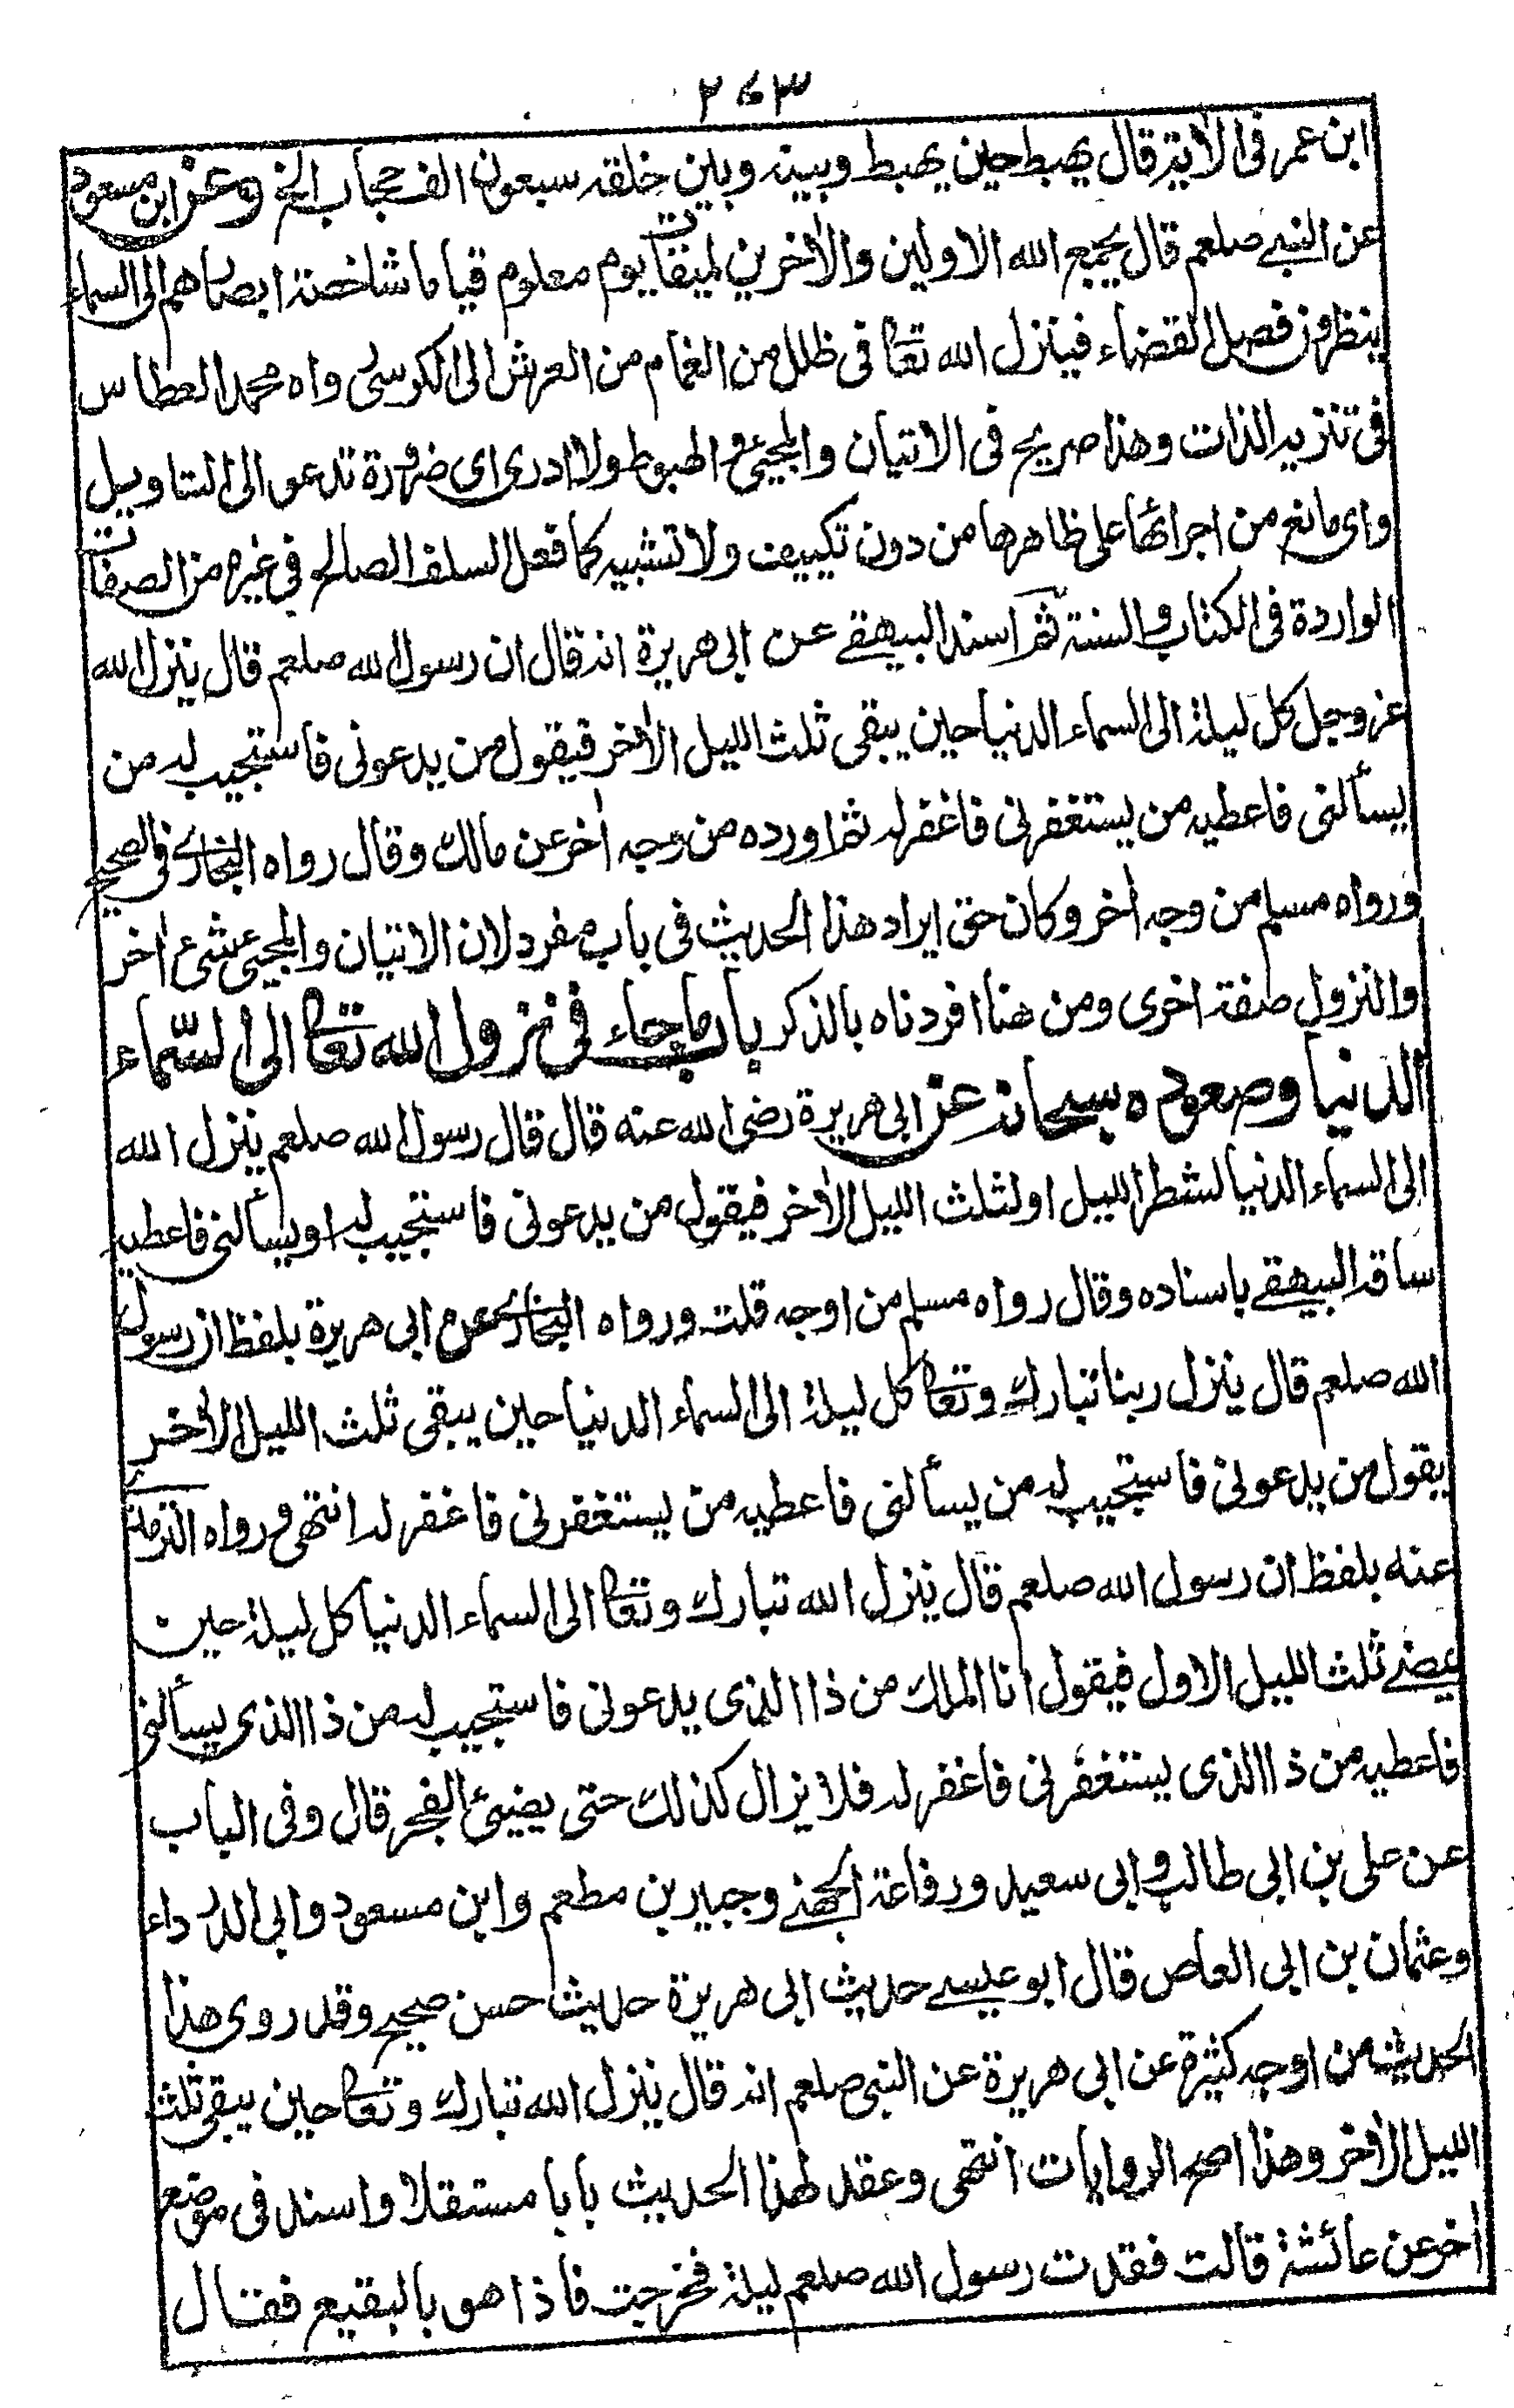 ٢٦٣
ابن عمر فى الاٰية قال يهبط حين يهبط وبينه وبين خلقه سبعون الف حجاب الخ وعن ابن مسعود
عن النبے صلعم قال يجمع الله الاولين والاٰخرين لميقات يوم معلوم قياما شاخصة ابصارهم الى السماء
ينظرون فصل القضاء فينزل الله تعا فى ظلل من الغمام من العرش الى الكرسى رواه محمد العطاس
فى تنزيه الذات وهذا صريح فى الاتيان والمجيئ و الهبوط ولا ادرى اى ضرورة تدعو الى التاويل
واى مانع من اجرائها على ظاهرها من دون تكييف ولا تشبيه كما فعل السلف الصالح فى غيره من الصفات
الواردة فى الكتاب والسنة ثم اسند البيهقے عن ابى هريرة انه قال ان رسول الله صلعم قال ينزل الله
عز وجل كل ليلة الى السماء الدنيا حين يبقى ثلث الليل الاٰخر فيقول من يدعونى فاستجيب له من
يسألنى فاعطيه من يستغفرنى فاغفر له ثم اورده من وجه اٰخر عن مالك وقال رواه البخارے فى الصحيح
ورواه مسلم من وجه اٰخر وكان حق ايراد هذا الحديث فى باب مفرد لان الاتيان والمجيئ شئ اٰخر
والنزول صفة اخرى ومن هنا افردناه بالذكر باب ما جاء فى نزول الله تعا الى السّماء
الدنيا وصعوده سبحانه عن ابى هريرة رضى الله عنه قال قال رسول الله صلعم ينزل الله
الى السماء الدنيا لشطر الليل او لثلث الليل الاٰخر فيقول من يدعونى فاستجيب له او يسألنى فاعطيه
ساقه البيهقے باسناده وقال رواه مسلم من اوجه قلت ورواه البخارے عن ابى هريرة بلفظ ان رسول
الله صلعم قال ينزل ربنا تبارك وتعا كل ليلة الى السماء الدنيا حين يبقى ثلث الليل الاٰخر
يقول من يدعونى فاستجيب له من يسألنى فاعطيه من يستغفرنى فاغفر له انتهى ورواه الترمذے
عنه بلفظ ان رسول الله صلعم قال ينزل الله تبارك وتعا الى السماء الدنيا كل ليلة حين
يمضے ثلث الليل الاول فيقول انا الملك من ذا الذى يدعونى فاستجيب له من ذا الذى يسألنى
فاعطيه من ذا الذى يستغفرنى فاغفر له فلا يزال كذلك حتى يضيئ الفجر قال وفى الباب
عن على بن ابى طالب وابى سعيد ورفاعة الجهنے وجبير بن مطعم وابن مسعود وابى الدرداء
وعثمان بن ابى العاص قال ابو عيسے حديث ابى هريرة حديث حسن صحيح وقد روى هذا
الحديث من اوجه كثيرة عن ابى هريرة عن النبى صلعم انه قال ينزل الله تبارك وتعا حين يبقى ثلث
الليل الاٰخر وهذا اصح الروايات انتهى وعقد لهذا الحديث بابا مستقلا واسند فى موضع
اخر عن عائشة قالت فقدت رسول الله صلعم ليلة فخرجت فاذا هو بالبقيع فقال